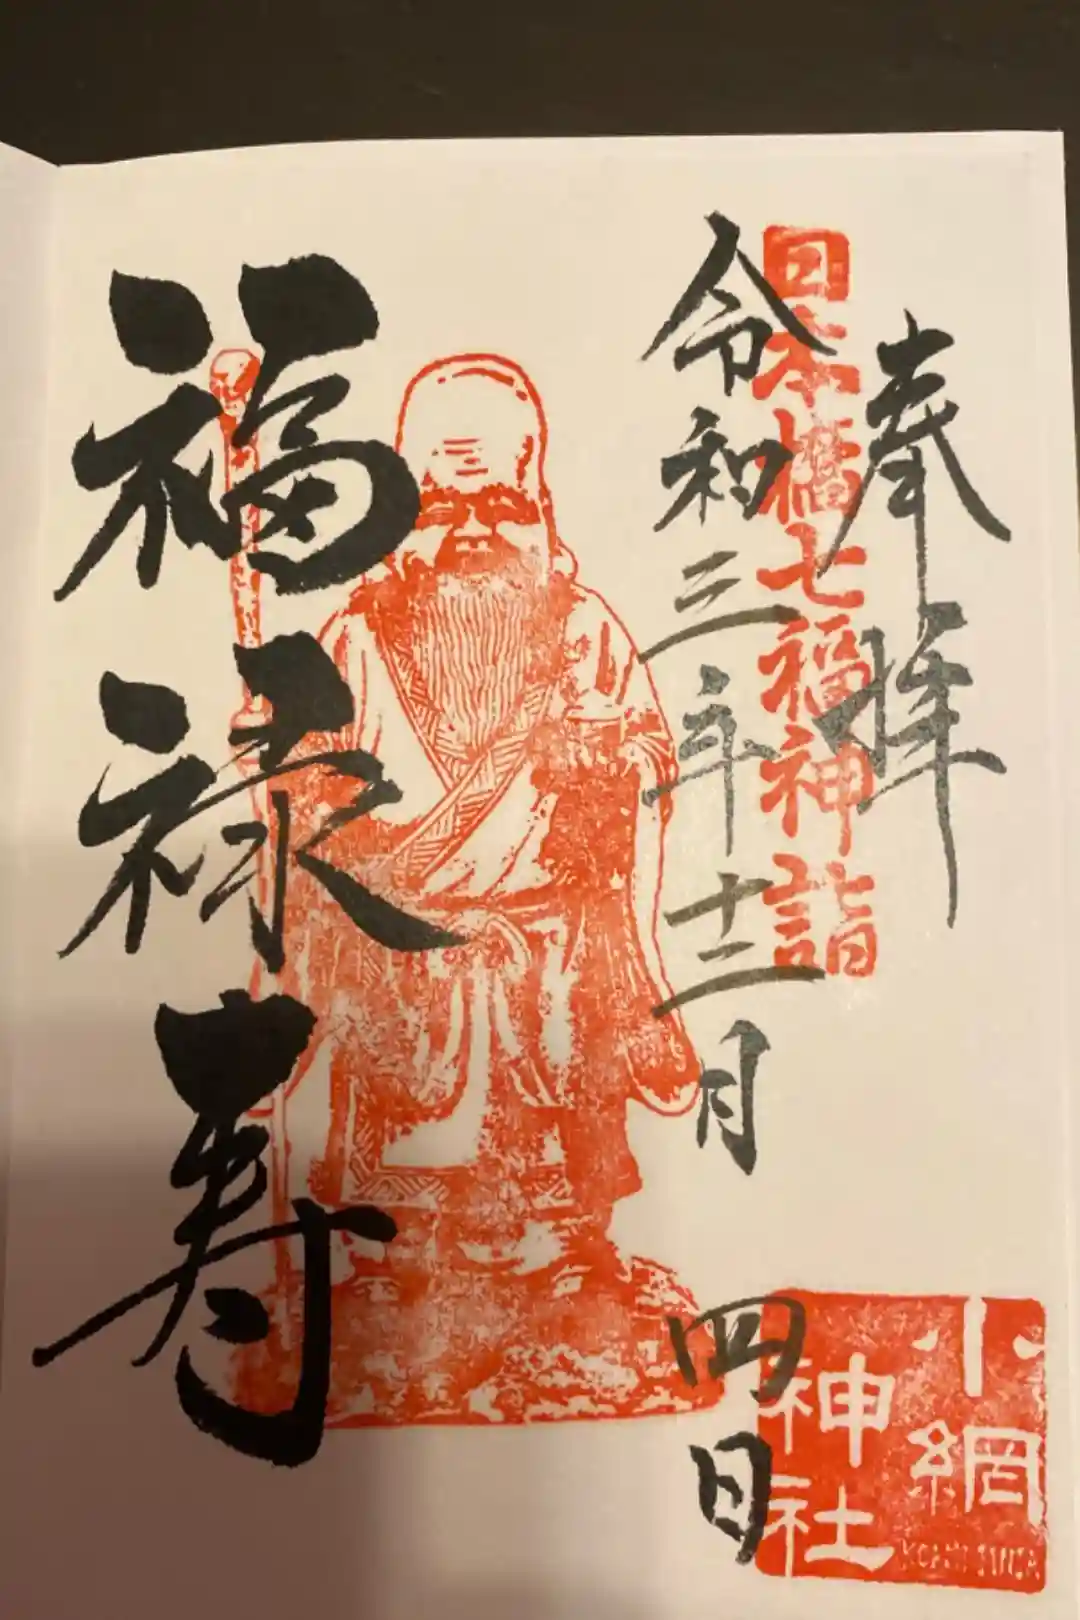 奉拝
日本橋七福神詣
令和三年十二月四日
福禄寿
小網
神社
KOAMI JINJA